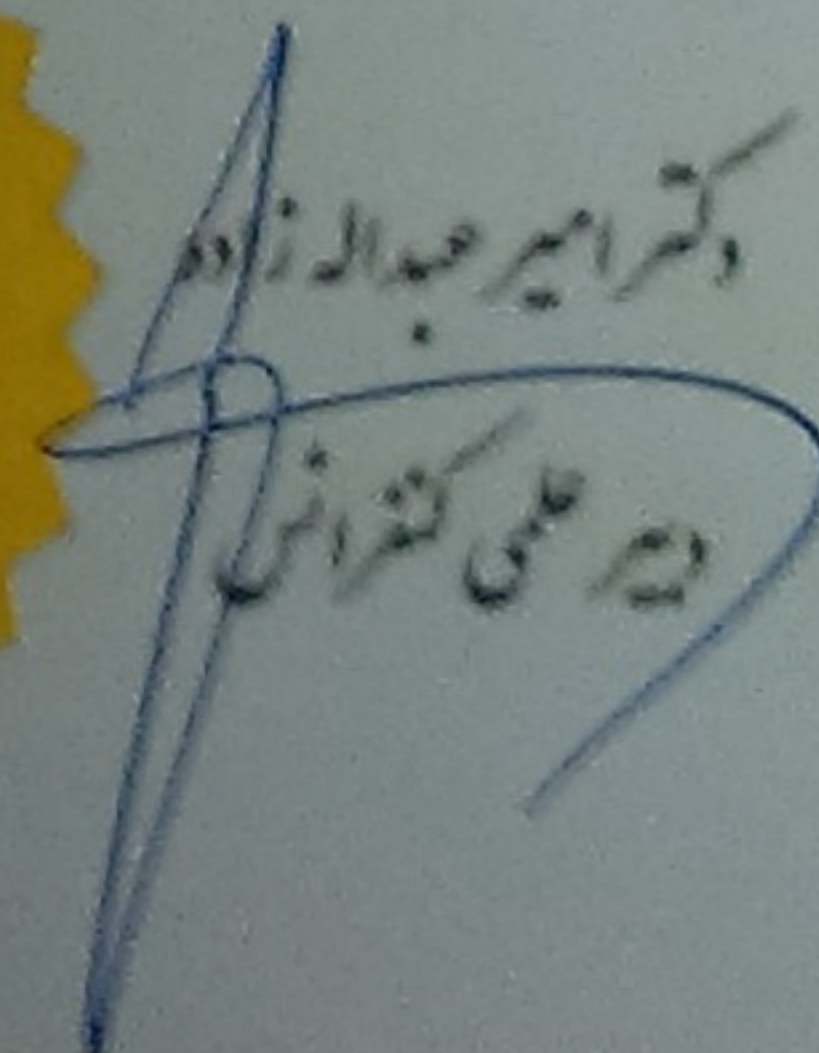 دکتر امیر عبداله زاده
دبیر علمی کنفرانس